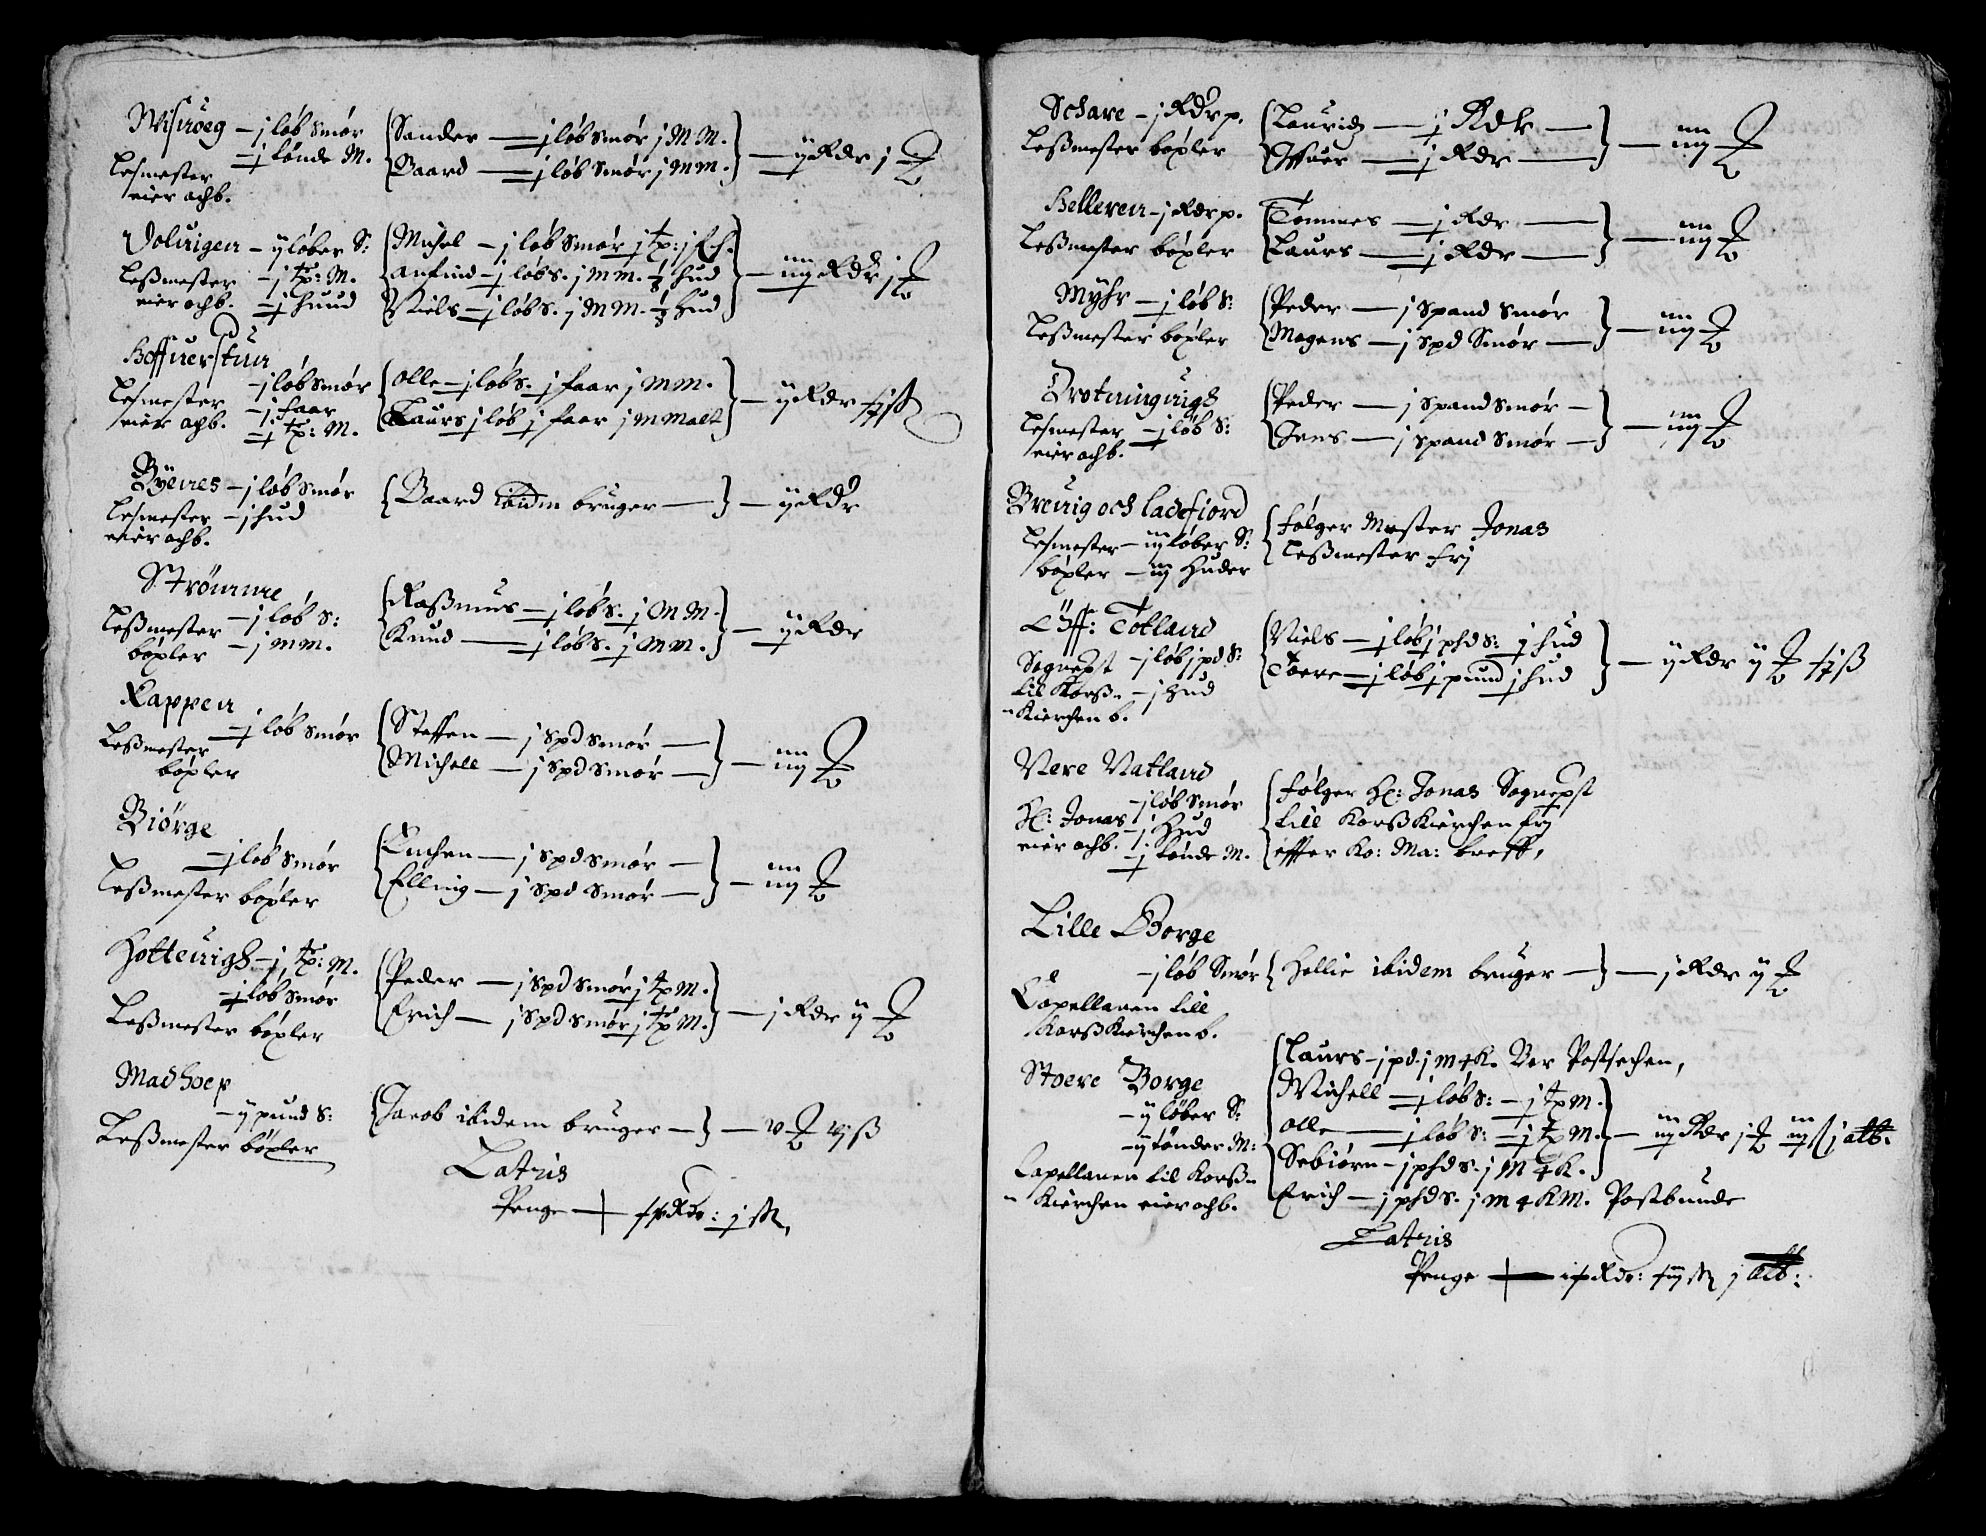 Wisnöeg – j løb smør
– j tønde M.
Lesmester
eier och b.
Sander – j løb smør j M M.
Baard – j løb smør j M M.
– ij Rdr j
Volningen – ij løber S:
Leßmester – j tp: M.
eier och b. – j huud
Michel – j løb smør j tp: j
anfind – j løb s. j m m. ½ hud
Niels – j løb s. j M M. ½ hud
– iiij Rdr j
Hoffuerstun
– j løb smør
Lesmester – j faar
eier och b. – j tp: M.
Olle – j løb s. j faar j m m.
Laurs j løb j faar j m malt
– ij Rdr
Byenes – j løb smør
Lesmester – j hud
eier och b.
Baard ibidm bruger – – ij Rdr
Strömme
Leßmester – j løb s:
böxler – j m m.
Raßmus – j løb s. j M M.
Knud – j løb s. j M M.
– ij Rdr
Kappen
– j løb smør
Leßmester
böxler
Steffen – j spd smør –
Michell – j spd smør –
– iiij
Biörge
– j løb smør
Leßmester böxler
Enchen – j spd smør –
Elling – j spd smør –
– iiij
Hottenigh – j tp: M.
j løb smør
Leßmester böxler
Peder – j spd smør j tp M.
Erich – j spd smør j tp M.
– j Rdr ij
Madhoep
– ij pund s:
Leßmester böxler
Jacob ibidem bruger – – v vj ß
Latris
Penge –
Schare – j Rdr p.
Leßmester böxler
Lauridz – j Rdr –
Effuer – j Rdr –
– iiij
Helleren – j Rdr p.
Leßmester böxler
Tommes – j Rdr –
Laurs – j Rdr –
– iiij
Myhr – j løb s:
Leßmester böxler
Peder – j spand smør
Mogens – j spd Smør –
– iiij
Drotningnigh
Lesmester – j løb s:
eier och b.
Peder – j spand smør –
Jens – j spand smør –
– iiij
Breinig och ladefiord
Lesmester – iij løber S:
böxler – iij Huder
følger Mester Jonas
Leßmester frj
Öff: Totland
Sognepst – j løb j pd S:
til Korß – j Hud
Kierchen b.
Niels – j løb j phd s: j hud
Toere – j løb j pund j hud
– ij Rdr ij
Nere Natland
– j løb smør
H: Jonas – j Hud
eier och b. – j tønde M.
følger H: Jonas Sognepst
till Korß Kierchen frj
effter Ko: Ma: breff,
Lille Borge
– j løb Smør
Capellanen till
Korß Kierchen b.
Hellie ibidem bruger – – j Rdr ij
Stoere Borge
– ij løber S:
– ij tønder M:
Capellanen til Korß
Kierchen eier och b.
Laurs – j pd. j m 4 K. Ber Postsechen,
Michell – j løb s: – j tp M.
Olle – j løb s: – j tp M.
Sebiörn – j phd s. j m 4 K.
Erich – j phd s. j m 4 K M. Postbunde
– iiij Rdr j iij ß j alb:
Latris
Penge – j alb: